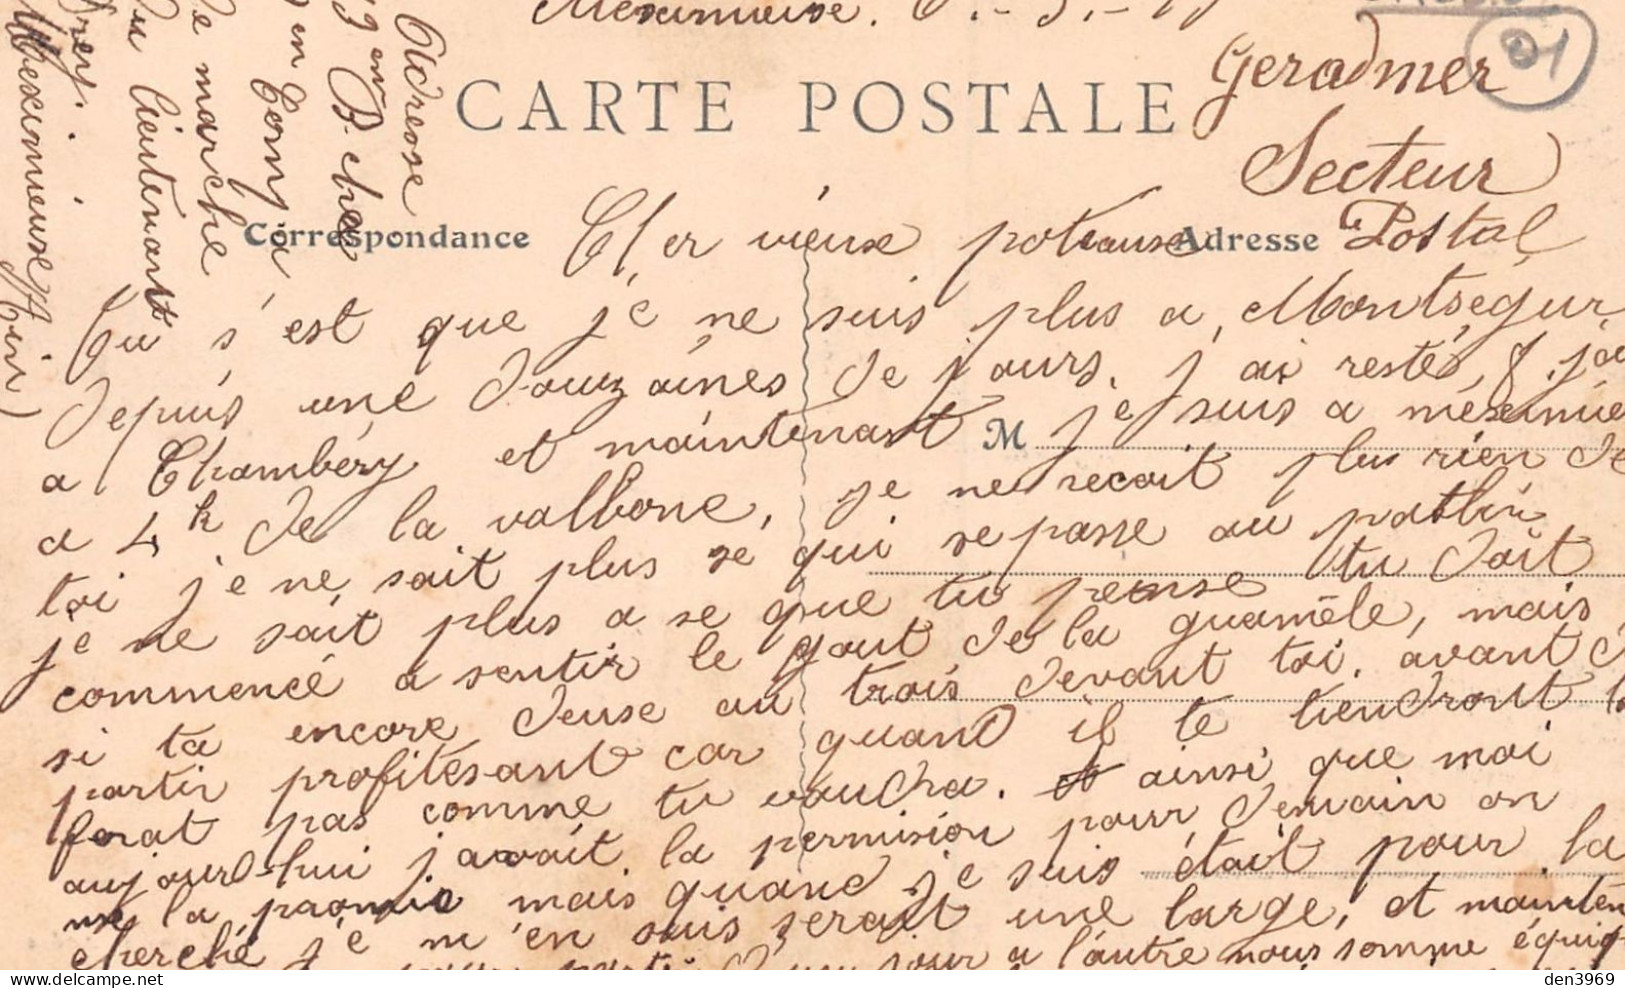 CARTE POSTALE
Correspondance
Adresse
M
Geradmer
Secteur
Postal
Adresse
Cher vieux poteause
Tu s'est que je ne suis plus a Montségur
Depuis une Douzaines de jours. j'ai resté 8 jo
a Chambéry et maintenant je suis a méximie
a 4 k de la valbone, je ne recoit plus rien de
toi je ne sait plus se qui se passe au patlin
je ne sait plus a se que tu pense tu doit
commencé a sentir le gout de la guamèle, mais
si ta encore deuse au trois devant toi. avant d
partir profitesant car quand il te tiendront
forat pas comme tu voudra. ainsi que moi
aujourd-hui j'avait la permision pour demain on
me la promis mais quand je suis était pour la
cherché je m'en suis serait une large, et mainten
jour a l'autre nous somme équip
du lieutenant
de marche
Meximieuse
Ain)
den3969